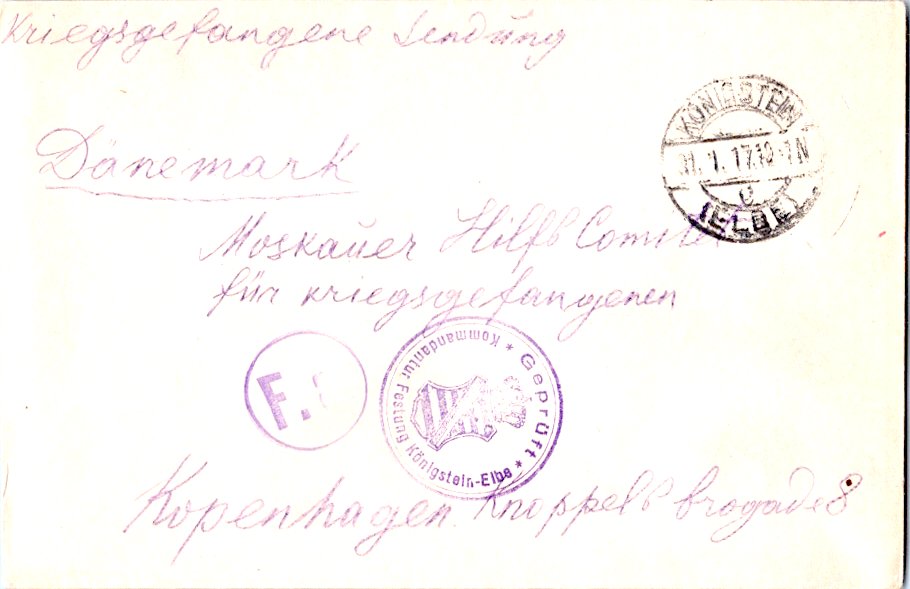 Kriegsgefangene Sendung
KÖNIGSTEIN
31.1.17.12-1N
(ELBE)
Dänemark
Moskauer Hilfs Comite
für kriegsgefangenen
F.
* Geprüft *
Kommandantur Festung Königstein-Elbe
Kopenhagen Knoppels brogade 8